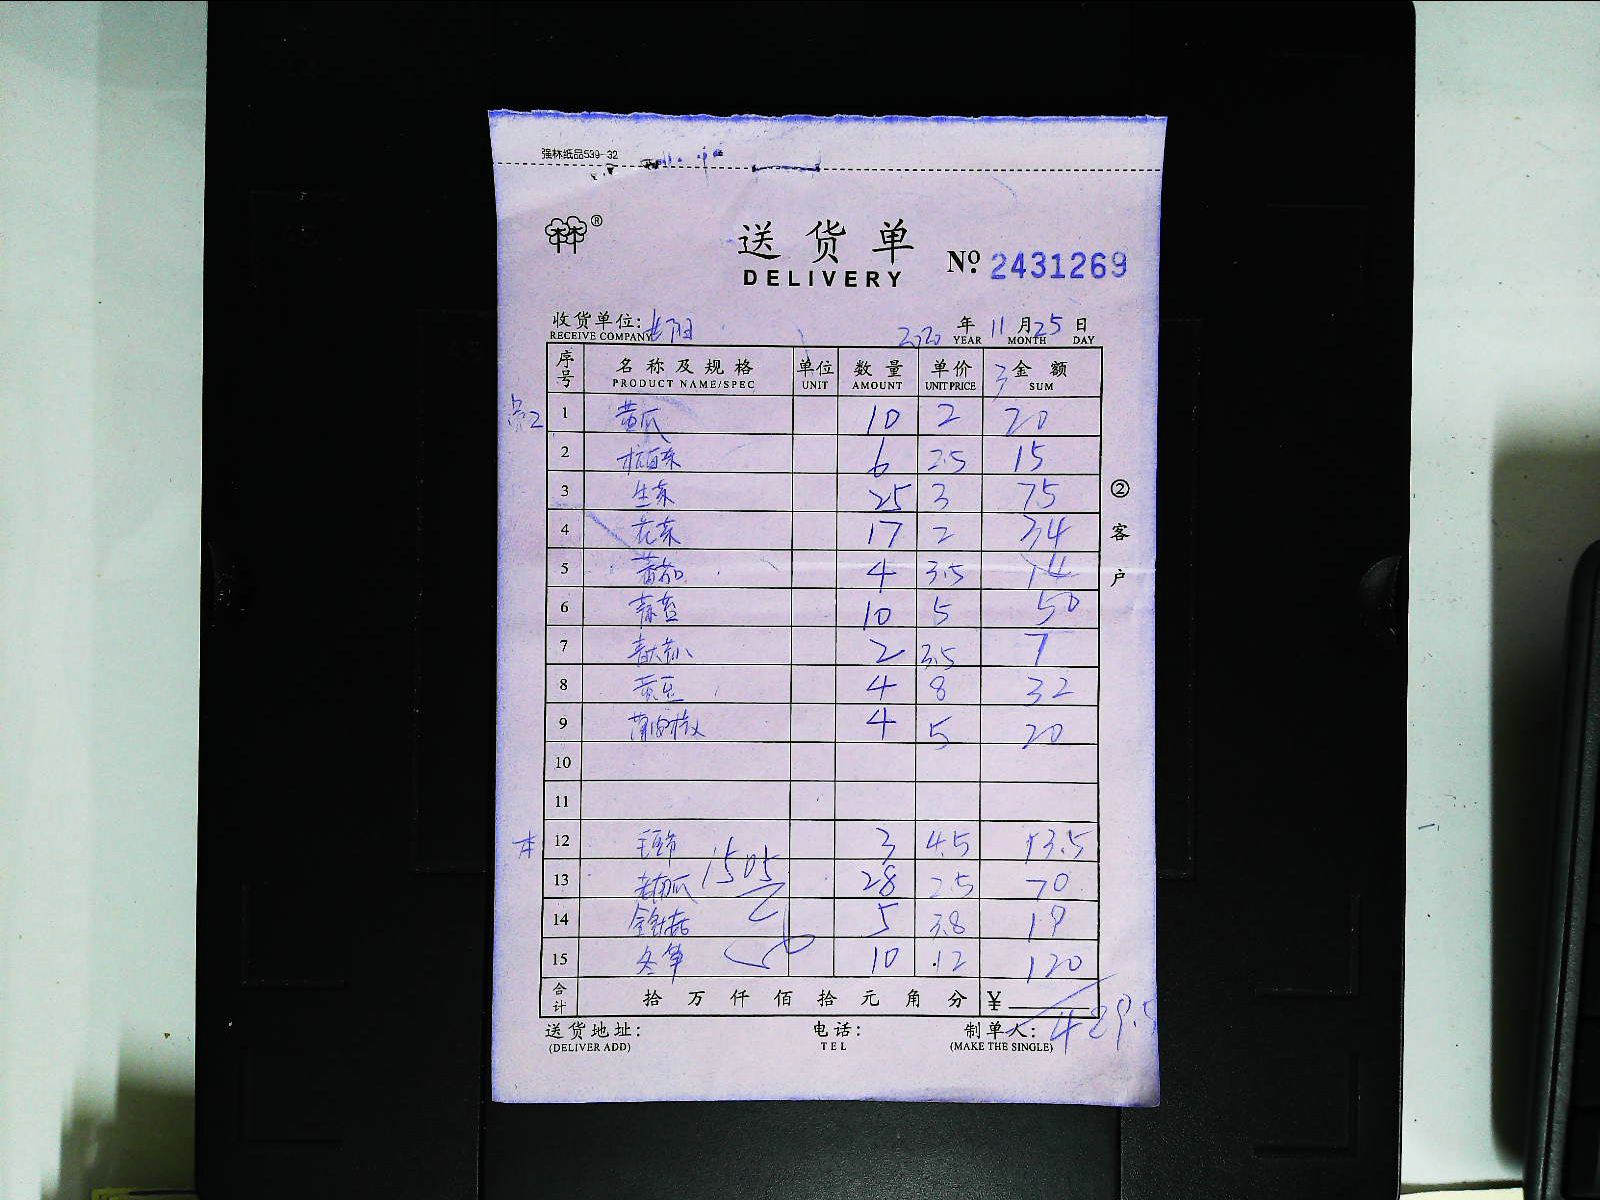 强林纸品539-32
®
送货单
DELIVERY
Nº 2431269
收货单位:
RECEIVE COMPANY
2020 年 11 月 25 日
YEAR MONTH DAY
序号 名称及规格 单位 数量 单价 金额
PRODUCT NAME/SPEC UNIT AMOUNT UNIT PRICE SUM
1 黄瓜 10 2 20
2 杭白菜 6 2.5 15
3 生菜 25 3 75
4 花菜 17 2 34
5 蕃茄 4 3.5 14
6 蒜苗 10 5 50
7 2 3.5 7
8 黄豆 4 8 32
9 4 5 20
10
11
本 12 毛豆节 3 4.5 13.5
13 老南瓜 28 2.5 70
1505
14 金针菇 5 3.8 19
15 冬笋 10 12 120
合计 拾万仟佰拾元角分 ¥
489.5
送货地址: 电话: 制单人:
(DELIVER ADD) TEL (MAKE THE SINGLE)
②客户